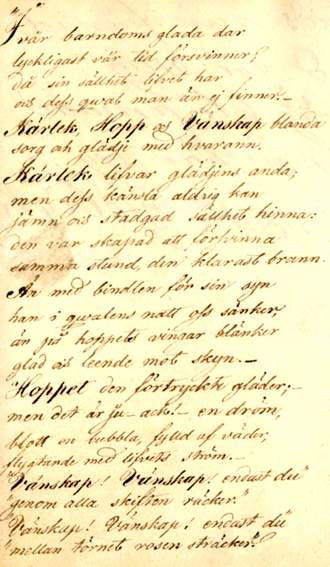 "I vår barndoms glada dar
lyckligast vår tid försvinner;
då sin sällhet lifvet har
och dess qwal man än ej finner.–
Kärlek, Hopp och Vänskap blanda
sorg och glädje med hvarann.
Kärlek lifvar glädjens anda;
men dess känsla aldrig han
jämn och stadgad sällhet hinna:
den var skapad att försvinna
samma stund, den klarast brann.
Än med bindlen för sin syn
han i qwalens natt oss sänker,
än på hoppets vingar blänker
glad och leende mot skyn.–
Hoppet den förtryckte gläder;–
men det är ju– ack!– en dröm,
blott en bubbla, fylld af väder,
flygtande med lifvets ström.–
"Vänskap! Vänskap! endast du"
"genom alla skiften räcker."
"Vänskap! Vänskap! endast du"
"mellan törnet rosen sträcker."